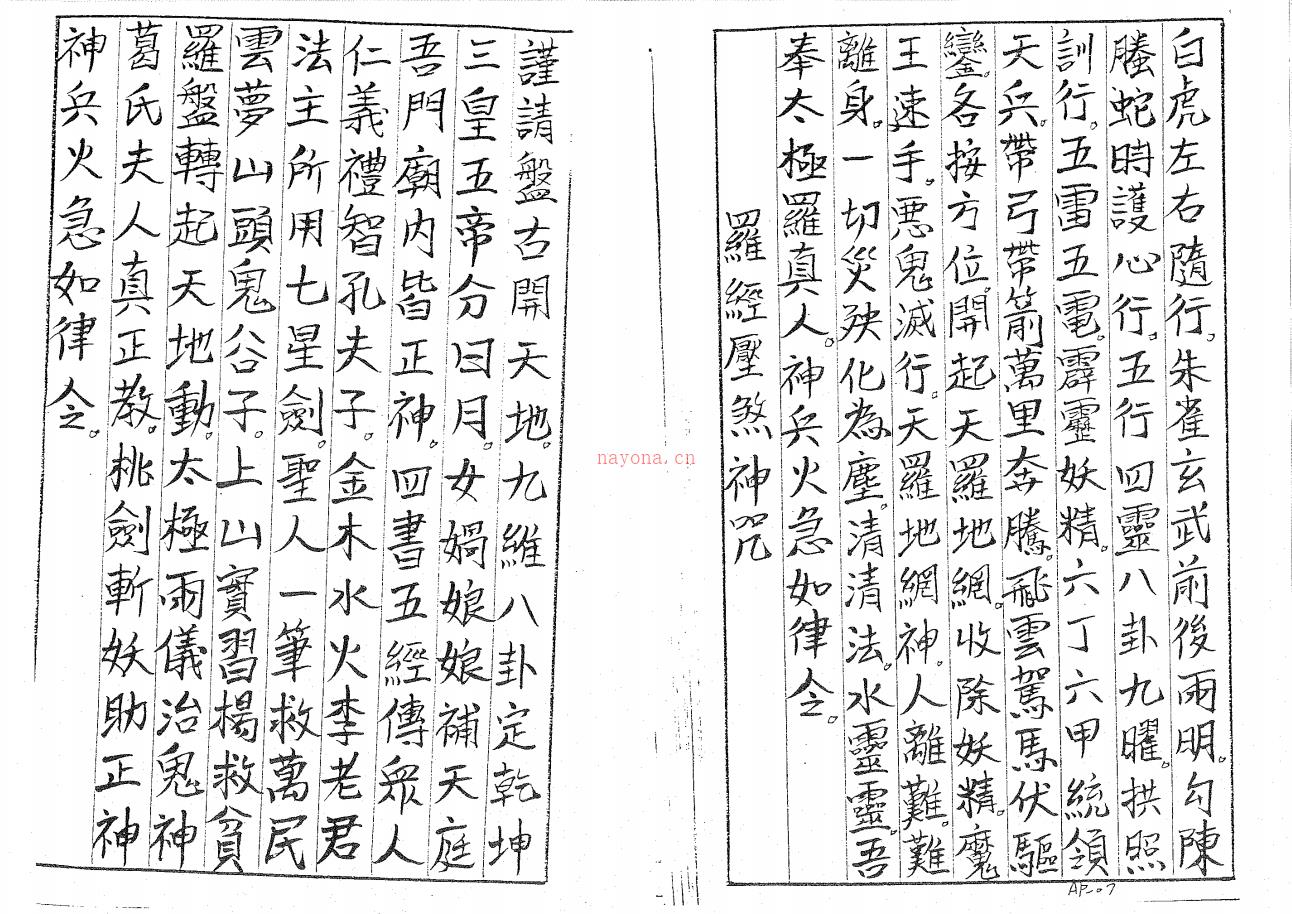 白虎左右隨行。朱雀玄武前後雨明。勾陳
螣蛇時護心行。五行四靈八卦九曜。拱照
訓行。五雷五電。霹靂妖精。六丁六甲統領
天兵。帶弓帶箭萬里奔騰。飛雲駕馬伏驅
鑾。各按方位。開起天羅地網。收除妖精。魔
王速手。惡鬼滅行。天羅地網神。人離難。難
離身。一切災殃化為塵。清清法。水靈靈。吾
奉太極羅真人。神兵火急如律令。
羅經壓煞神咒
謹請盤古開天地。九維八卦定乾坤
三皇五帝分日月。女媧娘娘補天庭
吾門廟內皆正神。四書五經傳眾人
仁義禮智孔夫子。金木水火李老君
法主所用七星劍。聖人一筆救萬民
雲夢山頭鬼谷子。上山實習楊救貧
羅盤轉起天地動。太極雨儀治鬼神
葛氏夫人真正教。桃劍斬妖助正神
神兵火急如律令。
nayona.cn
AP-07